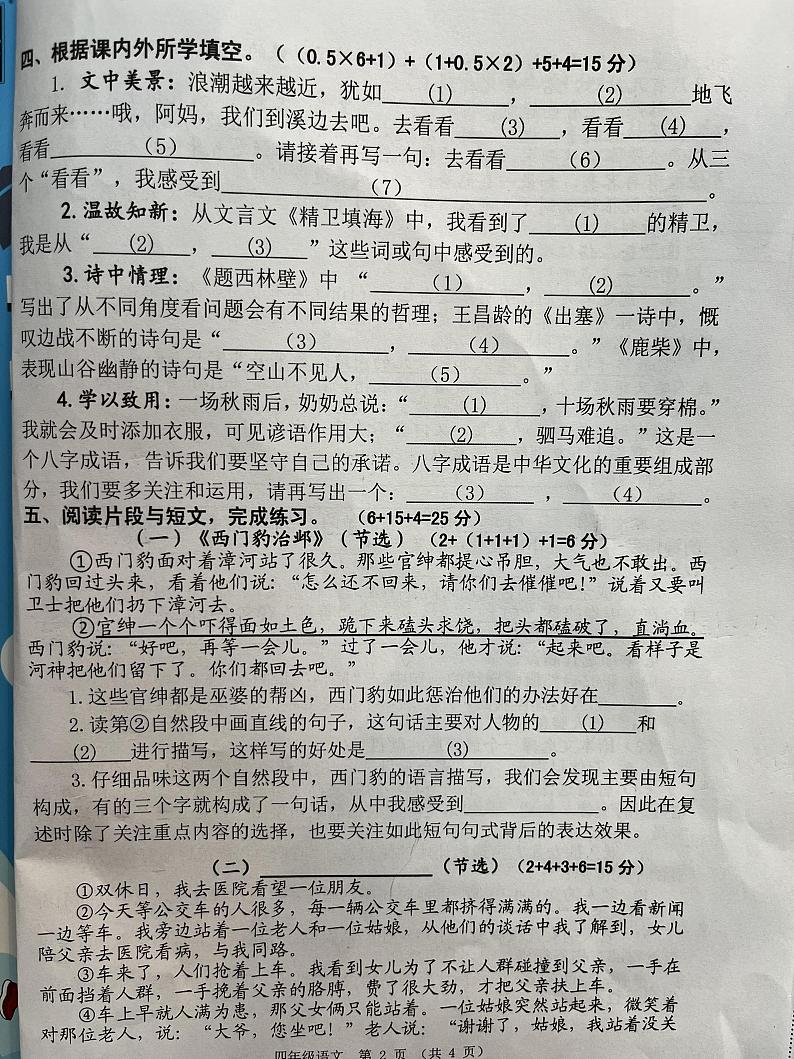 四、根据课内外所学填空。（（0.5×6+1）+（1+0.5×2）+5+4=15 分）
1. 文中美景：浪潮越来越近，犹如 (1) ， (2) 地飞
奔而来……哦，阿妈，我们到溪边去吧。去看看 (3) ，看看 (4) ，
看看 （5） 。请接着再写一句：去看看 （6） 。从三
个“看看”，我感受到 （7） 。
2.温故知新：从文言文《精卫填海》中，我看到了 (1) 的精卫，
我是从“ (2) ， (3) ”这些词或句中感受到的。
3.诗中情理：《题西林壁》中 “ （1） ， (2) 。”
写出了从不同角度看问题会有不同结果的哲理；王昌龄的《出塞》一诗中，慨
叹边战不断的诗句是“ （3） ， （4） 。”《鹿柴》中，
表现山谷幽静的诗句是“空山不见人， （5） 。”
4.学以致用：一场秋雨后，奶奶总说：“ (1) ，十场秋雨要穿棉。”
我就会及时添加衣服，可见谚语作用大；“ (2) ，驷马难追。”这是一
个八字成语，告诉我们要坚守自己的承诺。八字成语是中华文化的重要组成部
分，我们要多关注和运用，请再写出一个： （3） ， （4） 。
五、阅读片段与短文，完成练习。 （6+15+4=25 分）
（一）《西门豹治邺》（节选） （2+（1+1+1）+1=6 分）
①西门豹面对着漳河站了很久。那些官绅都提心吊胆，大气也不敢出。西
门豹回过头来，看着他们说：“怎么还不回来，请你们去催催吧！”说着又要叫
卫士把他们扔下漳河去。
②官绅一个个吓得面如土色，跪下来磕头求饶，把头都磕破了，直淌血。
西门豹说：“好吧，再等一会儿。”过了一会儿，他才说：“起来吧。看样子是
河神把他们留下了。你们都回去吧。”
1.这些官绅都是巫婆的帮凶，西门豹如此惩治他们的办法好在 。
2.读第②自然段中画直线的句子，这句话主要对人物的 (1) 和
(2) 进行描写，这样写的好处是 (3) 。
3.仔细品味这两个自然段中，西门豹的语言描写，我们会发现主要由短句
构成，有的三个字就构成了一句话，从中我感受到 。因此在复
述时除了关注重点内容的选择，也要关注如此短句句式背后的表达效果。
（二） （节选）（2+4+3+6=15 分）
①双休日，我去医院看望一位朋友。
②今天等公交车的人很多，每一辆公交车里都挤得满满的。我一边看新闻
一边等车。我旁边站着一位老人和一位姑娘，从他们的谈话中我了解到，女儿
陪父亲去医院看病，与我同路。
③车来了，人们抢着上车。我看到女儿为了不让人群碰撞到父亲，一手在
前面挡着人群，一手挽着父亲的胳膊，费了很大劲，才把父亲扶上车。
④车上早就人满为患，那父女俩只能站着。一位姑娘突然站起来，微笑着
对那位老人，说：“大爷，您坐吧！”老人说：“谢谢了，姑娘，我站着没关
四年级语文 第 2 页 （共 4 页）